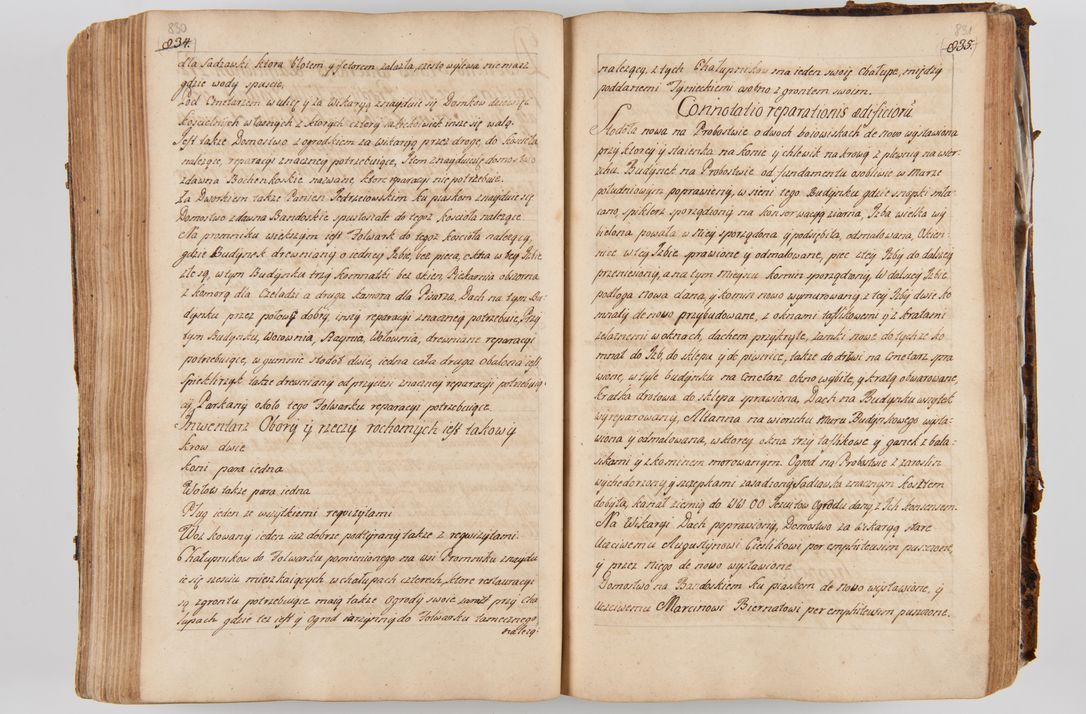 830
834.
dla Sadzawki ktora błotem y fetorem zalazła, często wylewa nie maiąc
gdzie wody spuscic.
Pod Cmetarzem w ulicy y za Wikaryą znayduie się Domkow dziewięc
kościelnych własnych z ktorych cztery
Jest także Domostwo z ogrodkiem za wikaryą przez drogę, do kościoła
nalezące, reparacyi znaczney potrzebuiące, Item znayduie się domostwo
zdawna Bochenkoskie nazwane ktore reparacyi nie potrzebuie.
Za Dworkiem także Panien Jędrzeiowskim ku piaskom znayduie się
Domostwo zdawna Bandoskie spustoszałe do tegoz kościoła nalezące.
Na promniku większym iest Folwark do tegoz kościoła nalezący,
gdzie Budynek drewniany o iedney Izbie, bez pieca, okna w tey Izbie
złe są, w tym Budynku trzy komnatki bez okien, Piekarnia obszerna
z komorą dla Czeladzi a druga komora dla Pisarza. Dach na tym Bu-
dynku przez połowę dobry, inszy reparacyi znaczney potrzebuie, Przy
tym Budynku, Wozownia, Stajnia, Wołownia, drewniane reparacyi
potrzebuiące, w gumnie stodoł dwie, iedna cała druga obalona iest,
Spichlerzyk także drewniany od przyciesi znaczney reparacyi potrzebuią-
cy, Parkany około tego Folwarku reparacyi potrzebuiące.
Inwentarz Obory y rzeczy rochomych iest takowy
Krow dwie
Koni para iedna
Wołow także para iedna
Pług ieden ze wszytkiemi requizytami
Woz kowany ieden iuz dobrze podtyrany także z requizytami.
Chałupnikow do Folwarku pomienionego na wsi Promniku znaydu-
ie się sześciu mieszkaiących w chałupach czterech, ktore restauracyi
są z gruntu potrzebuiące maią także Ogrody swoie zaraz przy Cha
łupach gdzie tez iest y Ogrod iarzynny do Folwarku tamecznego
nalezą-
831
835.
nalezący, z tych Chałupnikow ma ieden swoię Chałupę, między
poddanemi Tynieckiemi osobno z gruntem swoim.
Connotatio reparationis aedificiorũ
Stodoła nowa na Probostwie o dwoch boiowiskach de novo wystawiona
przy ktorey y staienka na konie y chlewik na krowy z plewnią na wierz-
chu. Budynek na Probostwie od fundamentu osobliwie w Murze
południowym poprawiony, w sieni tego Budynku gdzie snopki mło-
cano, spiklerz sporządzony na konserwacyą ziarna, Izba wielka wy-
bielona powała w niey sporządzona y podsębita, odmalowana, Okien-
nice w tey Izbie sprawione y odmalowane, piec z tey Izby do dalszey
przeniesiony, a na tym mieyscu komin sporządzony, W dalszey Izbie
podłoga nowa dana, y komin nowo wymurowany, z tey Izby dwie ko
mnaty de novo przybudowane, z oknami taflikowemi y z kratami
zelaznemi w oknach, dachem przykryte, zamki nowe do tychze ko
mnat do Izb, do sklepu y do piwnice, także do drzwi na Cmetarz spra
wione, w tyle budynku na Cmetarz okno wybite, y kratą okowarowane,
kratka drotowa do sklepu sprawiona, Dach na Budynku wszytek
wyreparowany, Altanna na wierzchu Muru Budynkowego wysta-
wiona y odmalowana, w ktorey okna trzy taflikowe y ganek z bala-
sikami y z kominem morowanym. Ogrod na Probostwie z zaroslin
wychędożony y szczepkami zasadzony, Sadzawka znacznym kosztem
dobyta, kanał ziemią do WW OO Jezuitow Ogrodu dany z Ich konsensem.
Na Wikaryi Dach poprawiony, Domostwo za wikaryą stare
Uczciwemu Augustynowi Cieslikowi per emphiteusim puszczone,
y przez niego de novo wystawione
Domostwo na Bandoskiem ku piaskom de novo wystawione, y
Uczciwemu Marcinowi Biernatowi per emphiteusim puszczone.